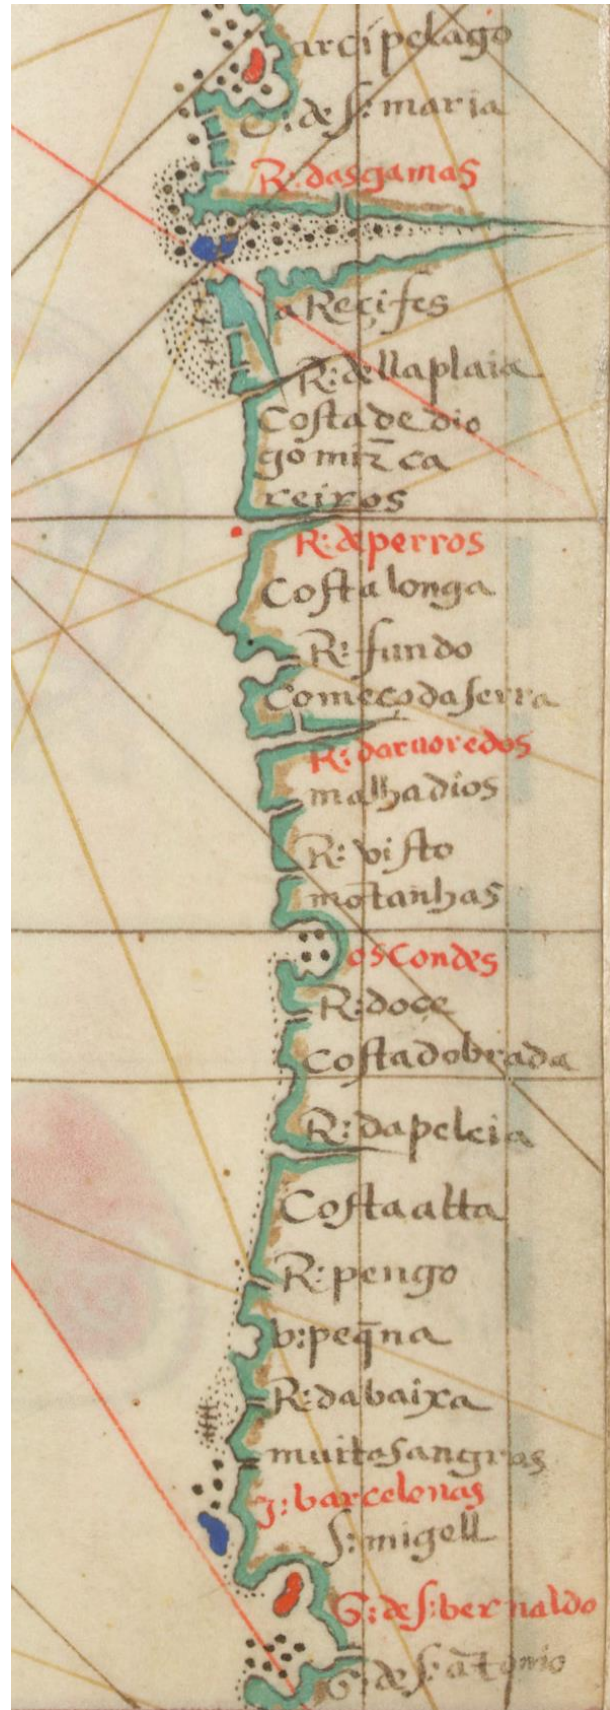 arcipelago
C: de s: maria
R: das gamas
a Recifes
R: dellaplaia
Costa de dio
go miz ca
reiros
R: de perros
Costa longa
R: fundo
Começo da serra
R: daruoredos
malhadios
R: visto
mõtanhas
os Condes
R: doçe
Costa dobrada
R: da peleia
Costa alta
R: pengo
b: peq̃na
R: da baixa
muitos angras
J: barcelonas
s: migell
G: de s: bernaldo
G: de s: ãtonio